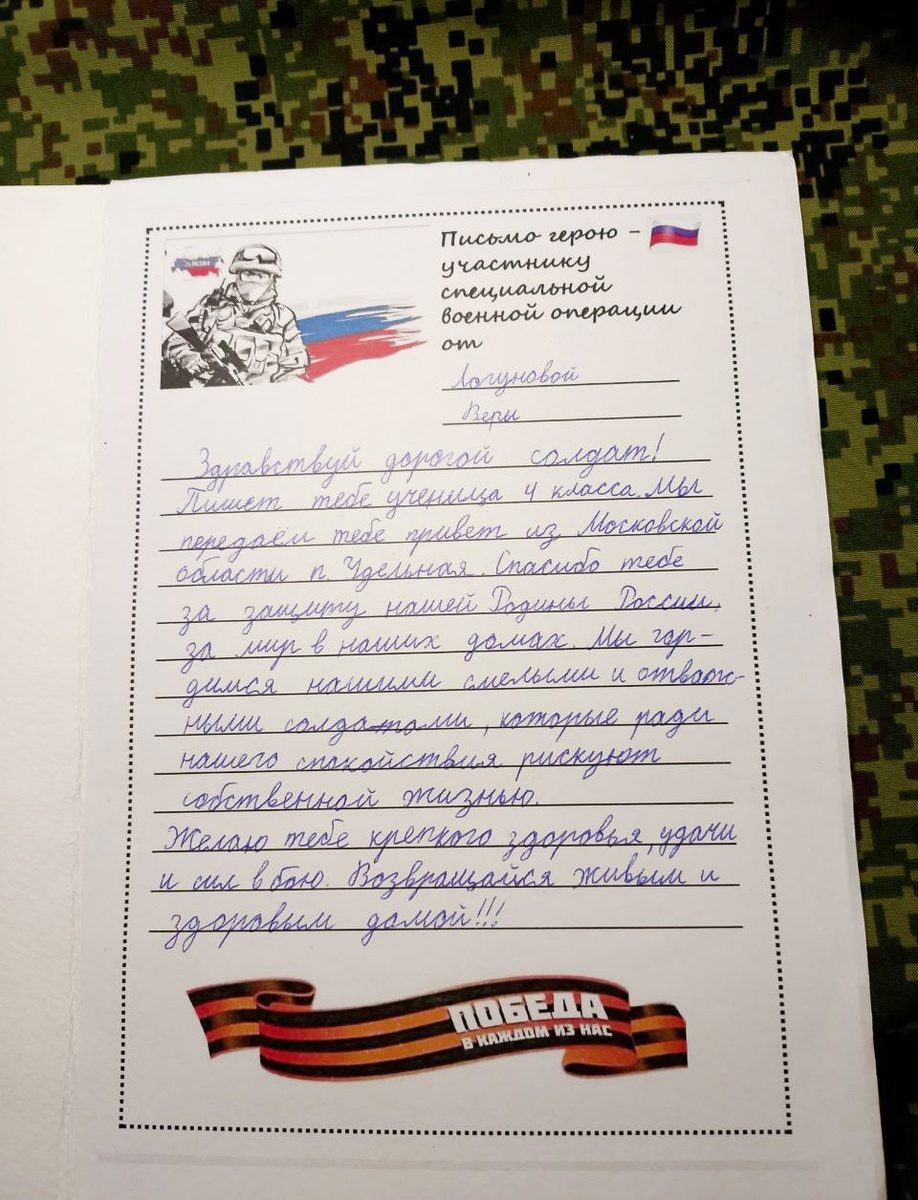 Письмо герою -
участнику
специальной
военной операции
от
Логуновой
Веры
Здравствуй дорогой солдат!
Пишет тебе ученица 4 класса. Мы
передаём тебе привет из Московской
области п. Удельная. Спасибо тебе
за защиту нашей Родины России,
за мир в наших домах. Мы гор-
димся нашими смелыми и отваж-
ными солдатами, которые ради
нашего спокойствия рискуют
собственной жизнью.
Желаю тебе крепкого здоровья, удачи
и сил в бою. Возвращайся живым и
здоровым домой!!!
ПОБЕДА
В КАЖДОМ ИЗ НАС